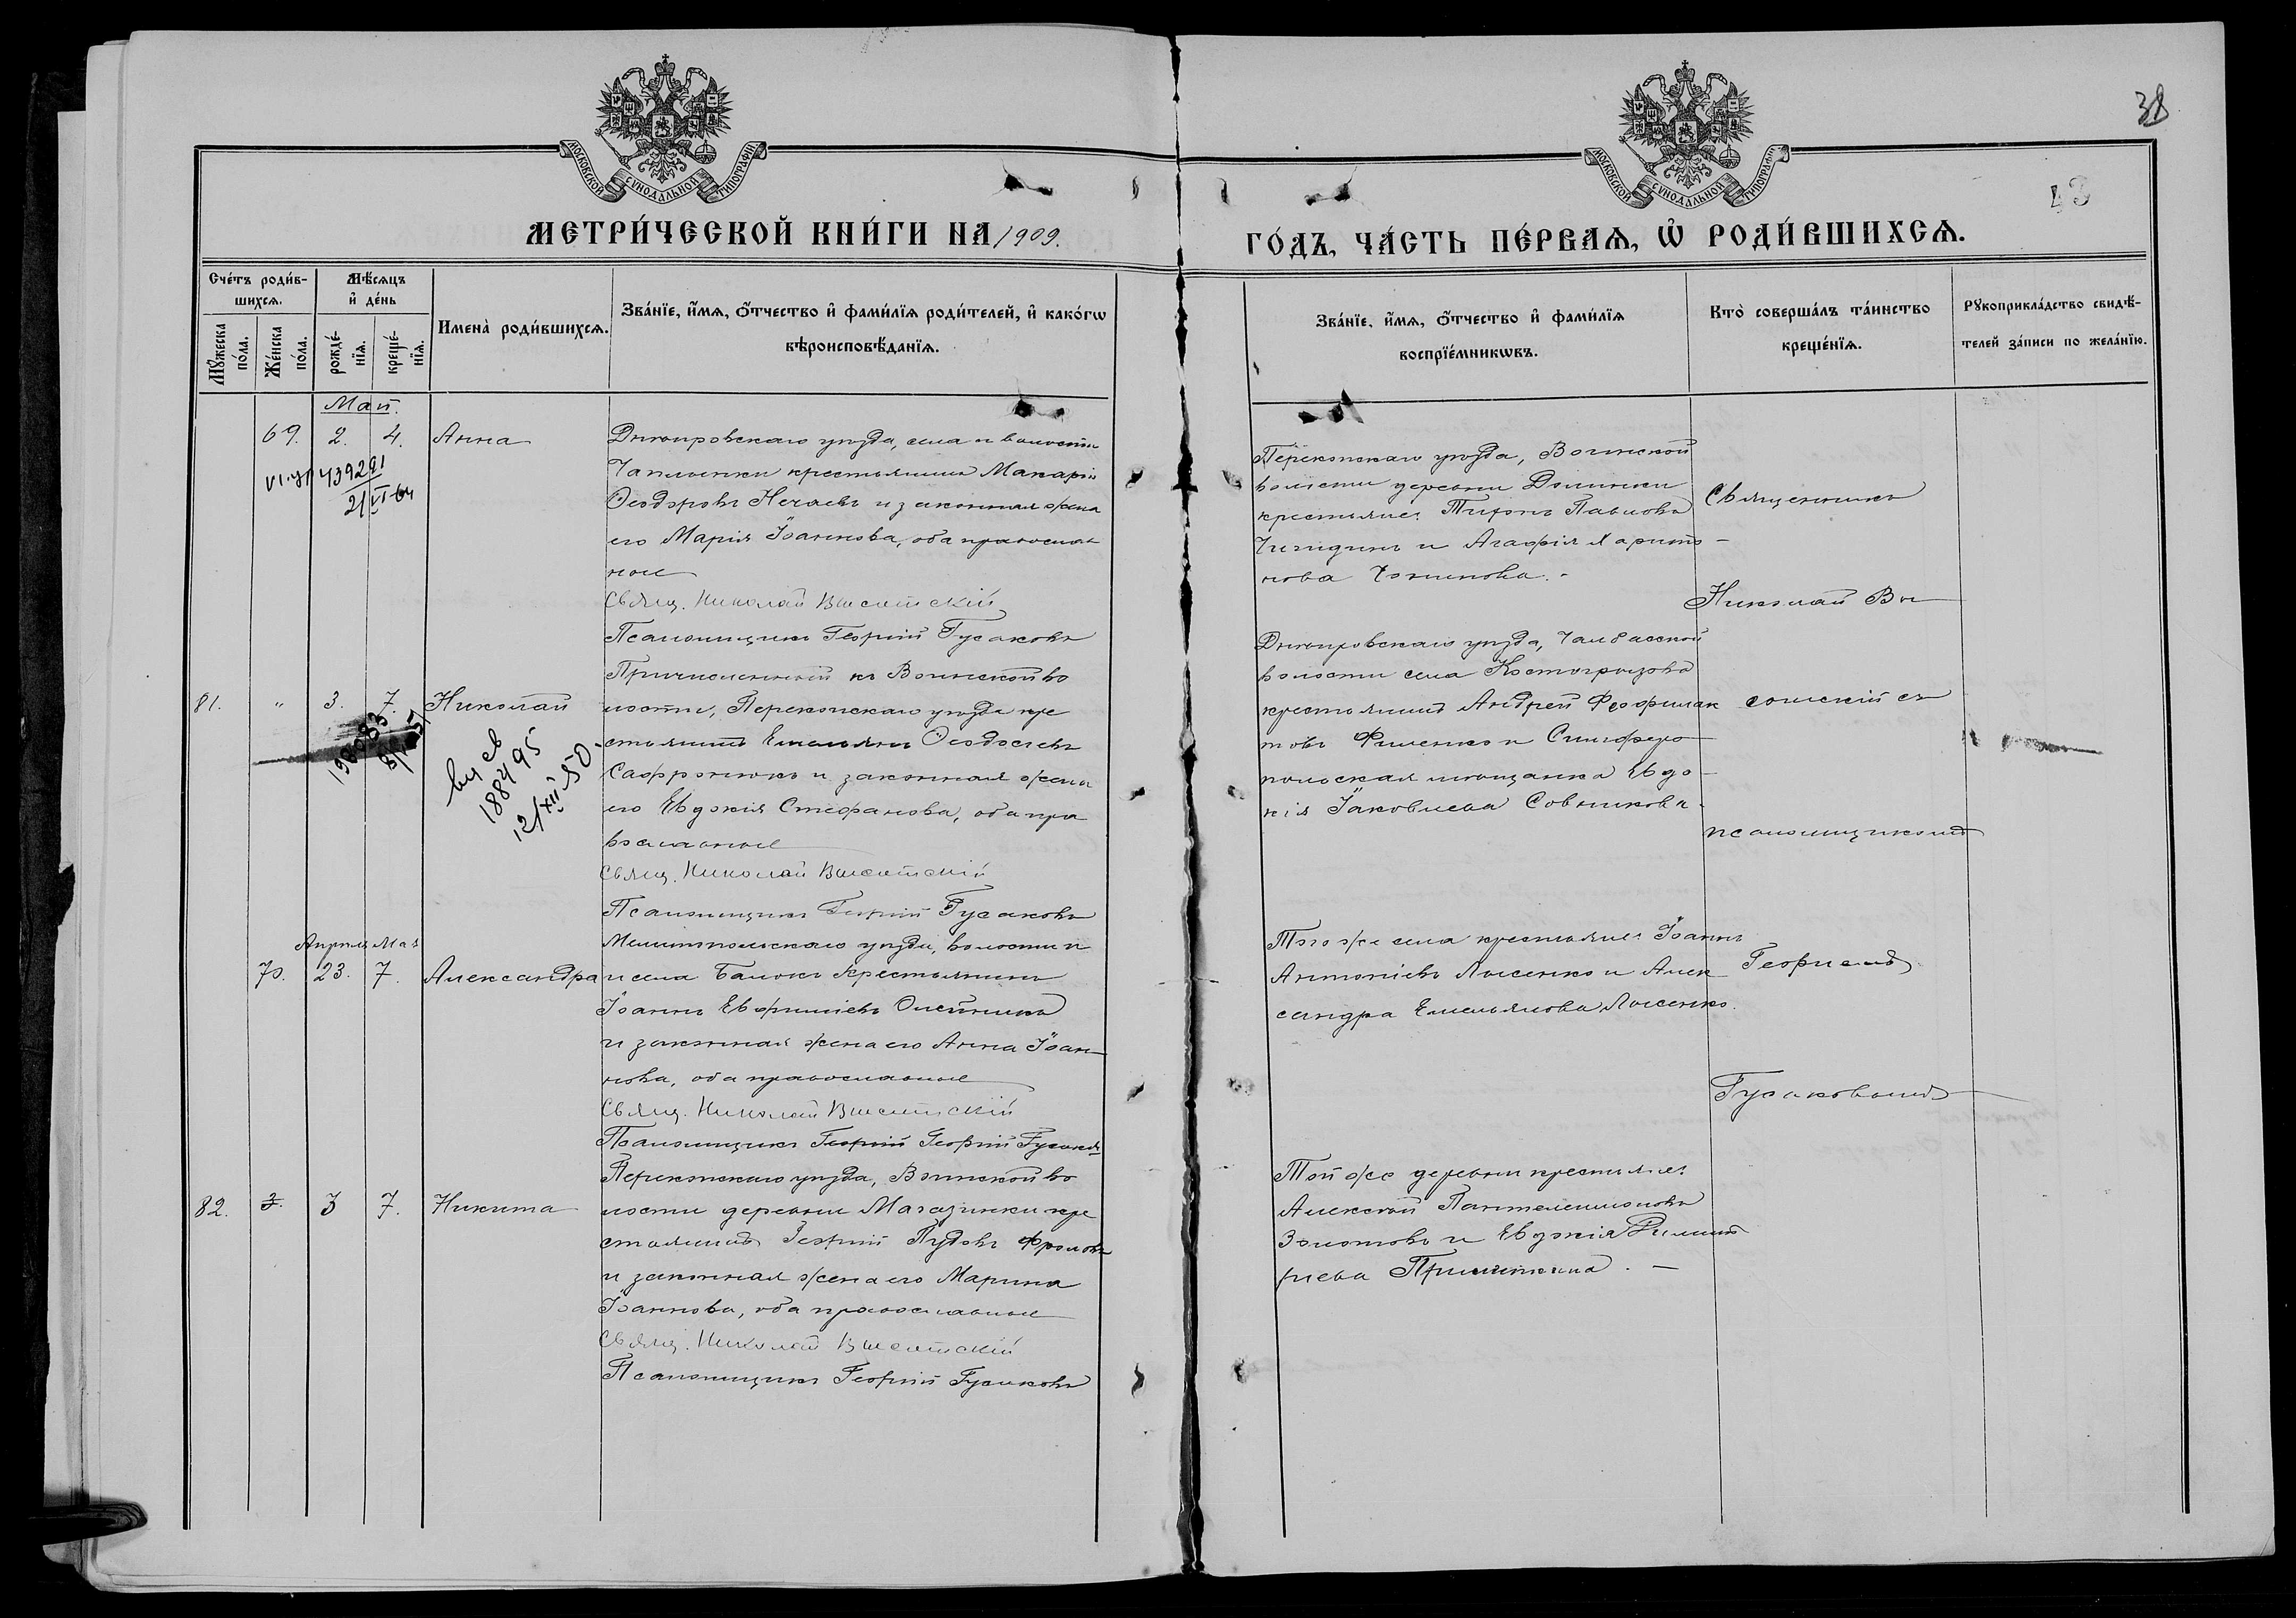 38
43
МОСКОВСКОЙ СѴНОДАЛЬНОЙ ТИПОГРАФІИ
МОСКОВСКОЙ СѴНОДАЛЬНОЙ ТИПОГРАФІИ
МЕТРИ́ЧЕСКОЙ КНИ́ГИ НА 1909.
ГО́ДЪ, ЧА́СТЬ ПЕ́РВАѦ, Ѡ҆ РОДИ́ВШИХСѦ.
Счéтъ роди́в-
шихсѧ.
Мꙋ́жеска
по́ла.
Жéнска
по́ла.
Мѣ́сѧцъ
и҆ дéнь
рождé-
нїѧ.
крещé-
нїѧ.
Именà роди́вшихсѧ.
Звáнїе, и҆́мѧ, ѻ҆́тчество и҆ фами́лїѧ роди́телей, и҆ какóгѡ
вѣроисповѣ́данїѧ.
Звáнїе, и҆́мѧ, ѻ҆́тчество и҆ фами́лїѧ
воспрїéмникѡвъ.
Кто̀ совершáлъ тáинство
крещéнїѧ.
Рꙋкоприклáдство свидѣ́-
телей зáписи по желáнїю.
Май.
69. 2. 4. Анна
439291
21/VI-64
Днѣпровскаго уѣзда, села и волости
Чаплынки крестьянинъ Макарій
Ѳеодоровъ Нечаевъ и законная жена
его Марія Іоаннова, оба православ
ные
Свящ. Николай Высотскій
Псаломщикъ Георгій Гусаковъ
Перекопскаго уѣзда, Воинской
волости деревни Долинки
крестьяне: Тихонъ Павловъ
и Агафія Харито-
нова
81. " 3. 7. Николай
198083
188495
12/XII-50.
Причисленный къ Воинской во
лости, Перекопскаго уѣзда кре
стьянинъ Емельянъ Ѳеодосіевъ
Сафронюкъ и законная жена
его Евдокія Стефанова, оба пра
вославные
Свящ. Николай Высотскій
Псаломщикъ Георгій Гусаковъ
Днѣпровскаго уѣзда, Чалбасской
волости села Костогрызова
крестьянинъ Андрей Феофилак
товъ Филенко и Симферо-
польская мѣщанка Евдо-
кія Іаковлева Совникова.
Апрѣля Мая
70. 23. 7. Александра
Мелитопольскаго уѣзда, волости и
и села Балокъ крестьянинъ
Іоаннъ Евфиміевъ Олейникъ
и законная жена его Анна Іоан-
нова, оба православные
Свящ. Николай Высотскій
Псаломщикъ Георгій Георгій Гусаковъ
Того же села крестьяне: Іоаннъ
Антоніевъ Лысенко и Алек
сандра Емельянова Лысенко.
82. 3. 3 7. Никита
Перекопскаго уѣзда, Воинской во
лости деревни Магазинки кре
стьянинъ Георгій Пудовъ Фроловъ
и законная жена его Марина
Іоаннова, оба православные
Свящ. Николай Высотскій
Псаломщикъ Георгій Гусаковъ
Той же деревни крестьяне:
Алексѣй Пантелеимоновъ
Золотовъ и Евдокія Димит
ріева
Священникъ
Николай Вы
сотскій съ
псаломщикомъ
Георгіемъ
Гусаковымъ